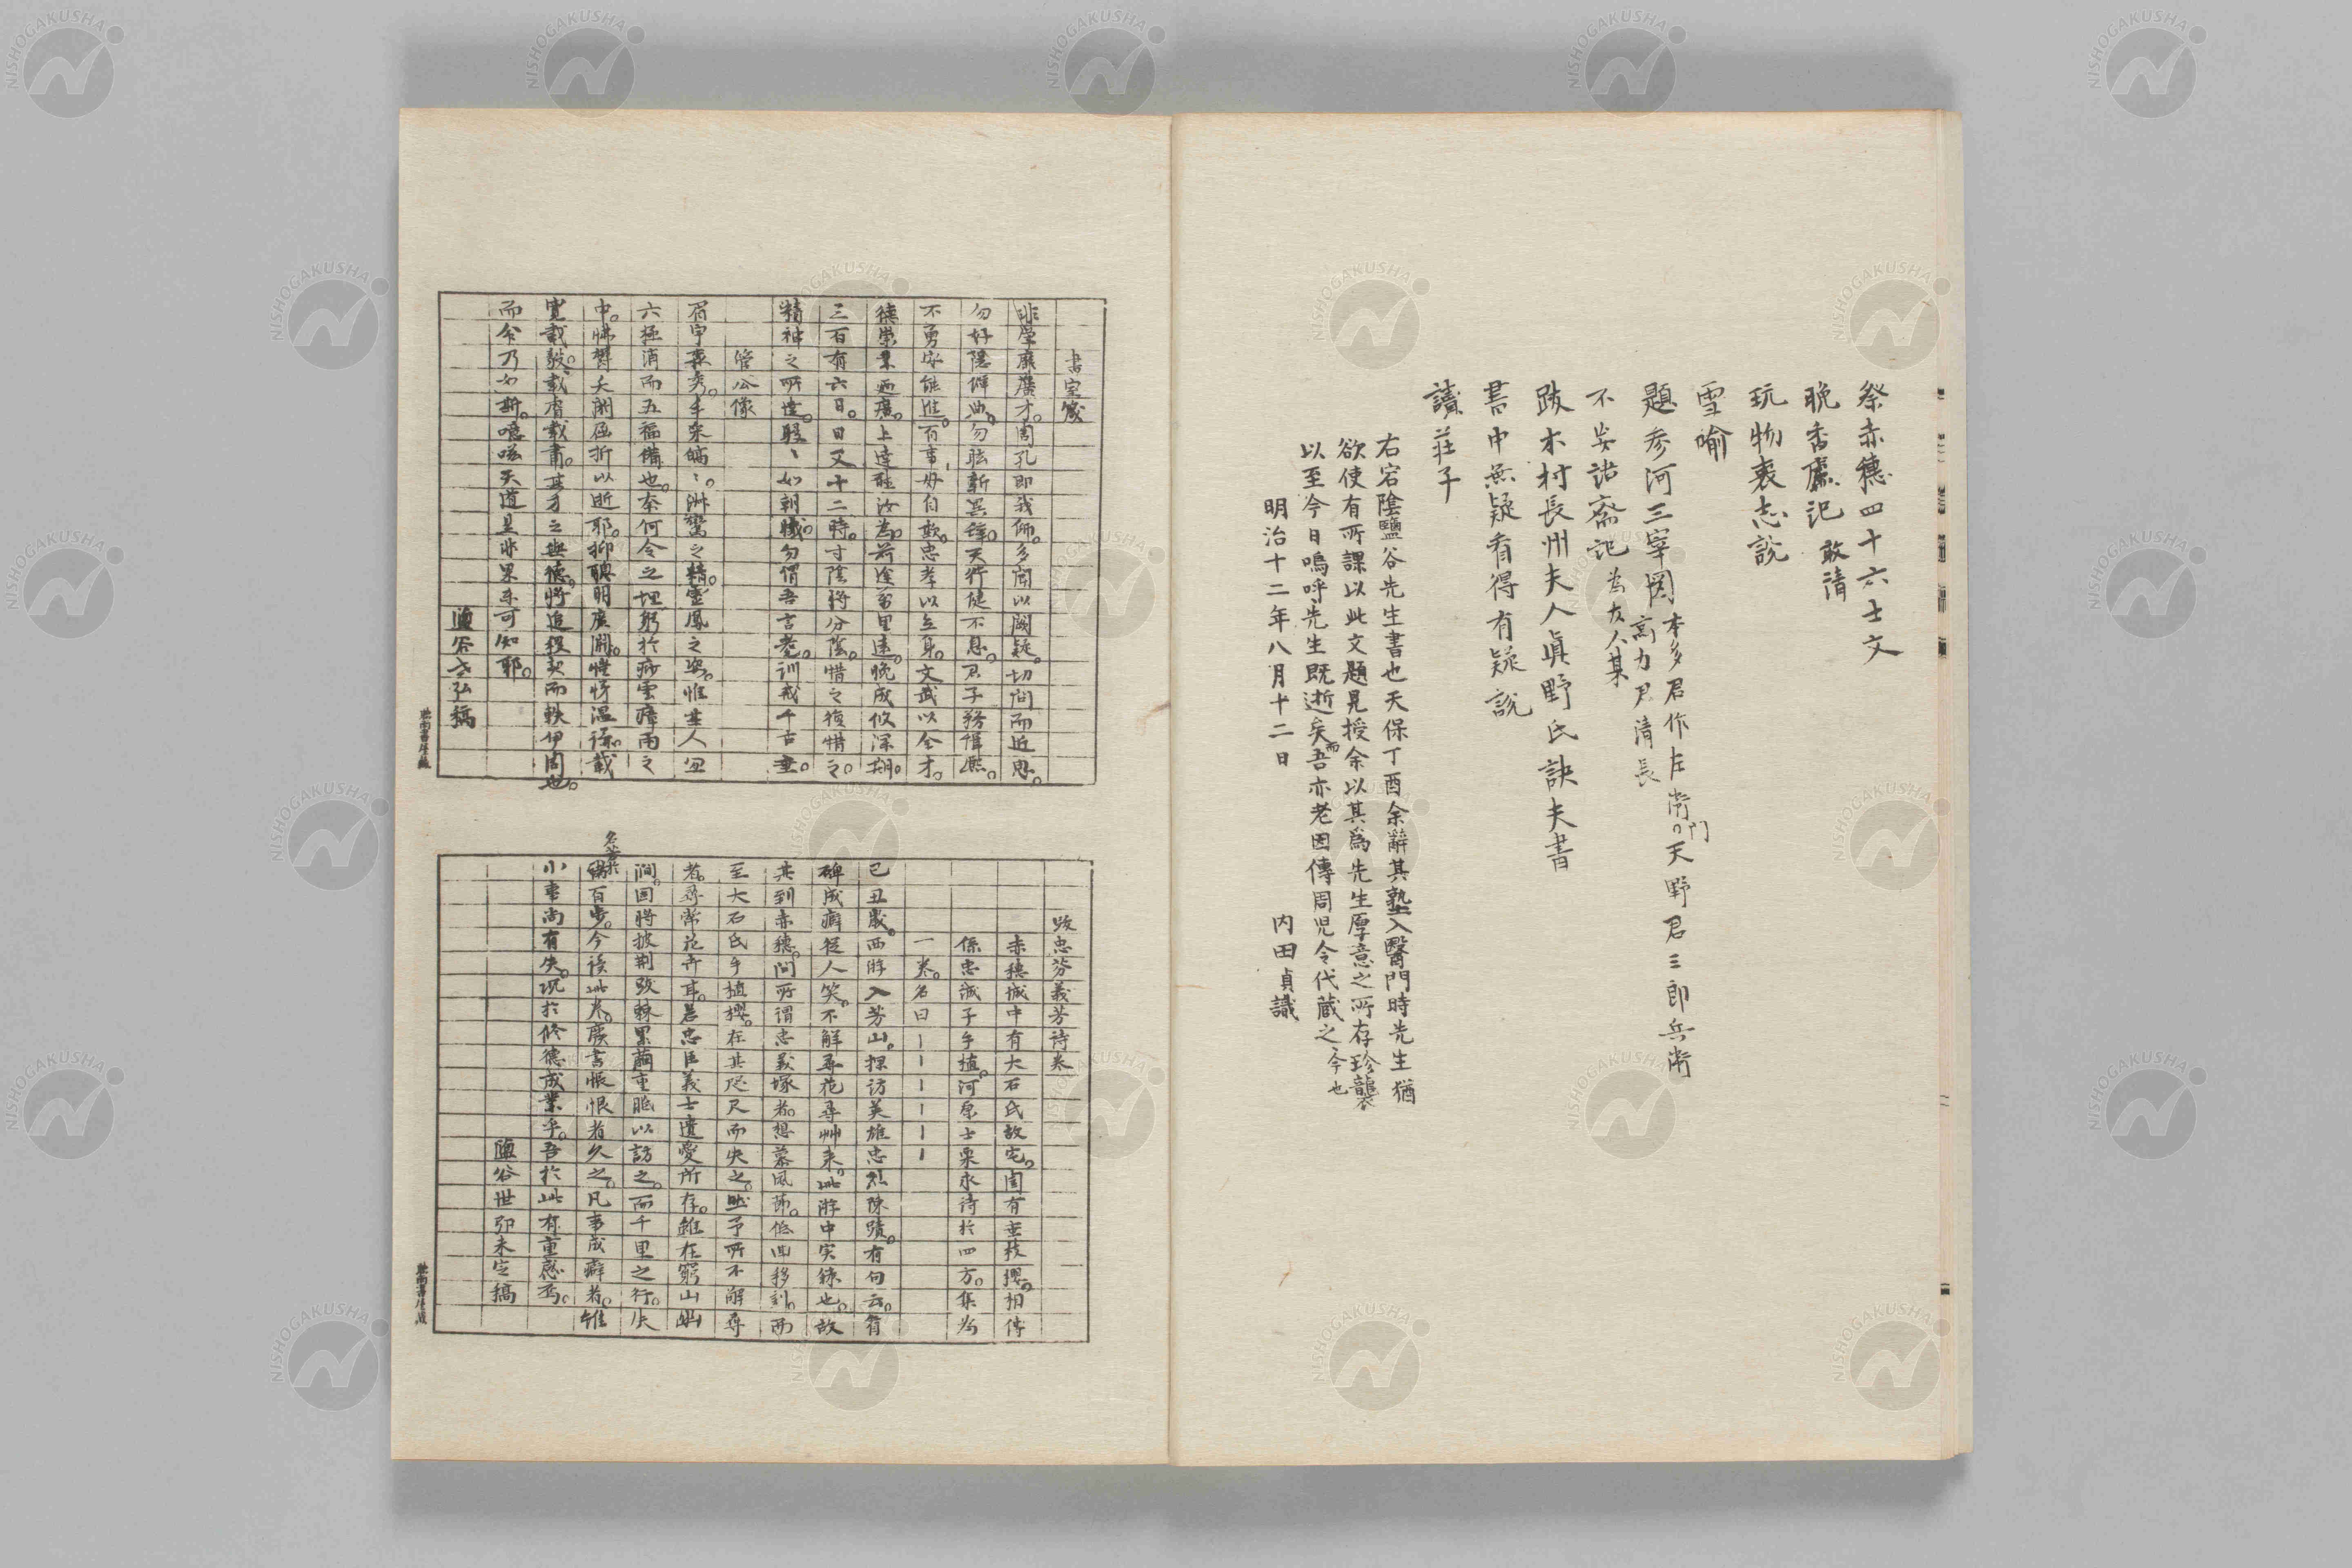 祭赤穗四十六士文
晩香廬記 敢清
玩物喪志說
雪喻
題参河三宰圖 本多君作左衛門 天野君三郎兵衛
高力君清長
不妄諾齋記 為友人某
跋木村長州夫人眞野氏訣夫書
書中無疑看得有疑說
讀莊子
右宕陰鹽谷先生書也天保丁酉余辭其塾入醫門時先生猶
欲使有所課以此文題見授余以其爲先生厚意之所存珍襲
以至今日嗚呼先生既逝矣而吾亦老因傳周児令代蔵之今也
明治十二年八月十二日 内田貞識
書室箴
非學廉廣才。周孔即我師。多聞以闕疑。切問而近思。
勿好隱僻幽。勿眩新異辞。天行健不息。君子務惟熙。
不勇安能進。百事毋自欺。忠孝以立身。文武以全才。
德崇業迺廣。上達在汝為。前途萬里遠。晩成攸深期。
三百有六日。日又十二時。寸陰将分陰。惜之復惜之。
精神之所達。殷〻如朝曦。勿謂吾言耄。訓戒千古垂。
管公像
眉宇森秀。丰采皭〻。洲鸞之精。霊鳳之姿。惟其人
六極消而五福備也。奈何令之埋躬於瘴雲瘴雨之
中。怫鬱夭閼屈折以逝耶。抑聰明廣淵。愷悌温
寛載毅。載膚載肅。其才之與德。將追稷契而軼伊周也。
而今乃如斯。噫嗟天道是非果不可知耶。
鹽谷世弘稿
跋忠芬義芳詩卷
赤穗城中有大石氏故宅。園有垂枝櫻。相傳
係忠誠子手植。河原士栗求詩於四方。集為
一卷。名曰
己丑歳。西游入芳山。探訪英雄忠烈陳蹟。有句云。
碑成癖従人笑。不解尋花尋艸来。此游中実録也。故
其到赤穗。問所謂忠義塚者。想慕風節。低囬移刻。而
至大石氏手植櫻。在其咫尺而失之。盖予所不解尋
者。尋常花卉耳。若忠臣義士遺愛所存。雖在窮山幽
澗。固將披荊跋棘累繭重胝以訪之。而千里之行。失
名著於
百歩。今讀此卷。廢書悵恨者久之。凡事成癖者。雖
小事尚有失。况於修德成業乎。吾於此有重感焉。
鹽谷世弘未定稿